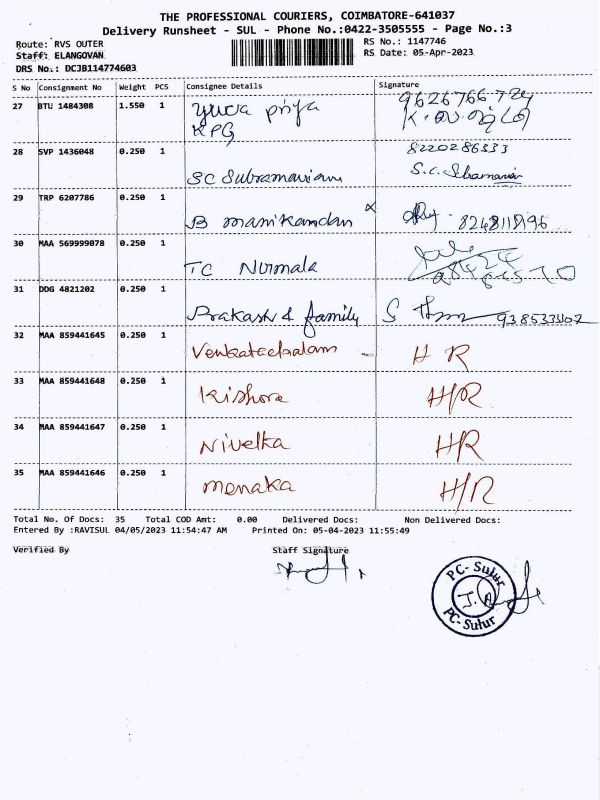 THE PROFESSIONAL COURIERS, COIMBATORE-641037
Delivery Runsheet - SUL - Phone No.:0422-3505555 - Page No.:3
Route: RVS OUTER
RS No.: 1147746
Staff: ELANGOVAN
RS Date: 05-Apr-2023
DRS No.: DCJB114774603
S No Consignment No Weight PCS Consignee Details Signature
27 BTU 1484308 1.550 1 Yuva Priya
KPG
28 SVP 1436048 0.250 1 SC Subramaniam 8220286333
29 TRP 6207786 0.250 1 B manikandan
30 MAA 569999078 0.250 1 TC Nirmala
31 DDG 4821202 0.250 1 Prakash & family
32 MAA 859441645 0.250 1 Venkatechalam HR
33 MAA 859441648 0.250 1 Kishore H/R
34 MAA 859441647 0.250 1 Nivetka HR
35 MAA 859441646 0.250 1 menaka H/R
Total No. Of Docs: 35 Total COD Amt: 0.00 Delivered Docs: Non Delivered Docs:
Entered By :RAVISUL 04/05/2023 11:54:47 AM Printed On: 05-04-2023 11:55:49
Verified By Staff Signature
PC- Sulur
PC- Sulur